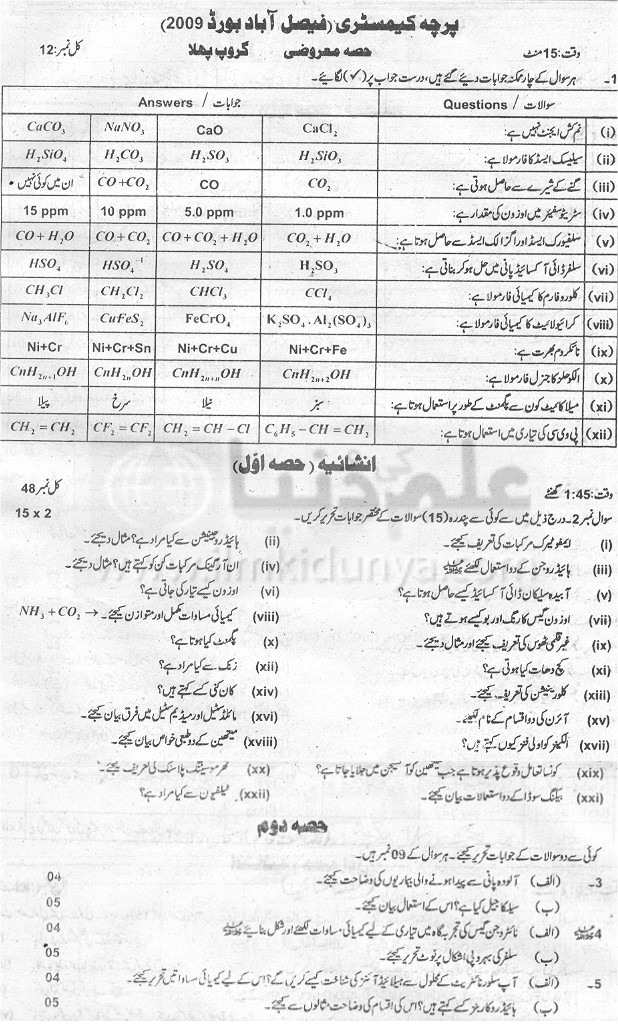 پرچہ کیمسٹری (فیصل آباد بورڈ 2009)
وقت: 15 منٹ حصہ معروضی گروپ پہلا کل نمبر: 12
1- ہر سوال کے چار ممکنہ جوابات دیئے گئے ہیں، درست جواب پر (✓) لگائیے۔
سوالات / Questions جوابات / Answers
(i) نم کش ایجنٹ نہیں ہے: CaCl₂ CaO NaNO₃ CaCO₃
(ii) سیلیسک ایسڈ کا فارمولا ہے: H₂SiO₃ H₂SO₃ H₂CO₃ H₂SiO₄
(iii) گنے کے شیرے سے حاصل ہوتی ہے: CO₂ CO CO+CO₂ ان میں کوئی نہیں
(iv) سٹریٹوسفیئر میں اوزون کی مقدار ہے: 1.0 ppm 5.0 ppm 10 ppm 15 ppm
(v) سلفیورک ایسڈ اور اگزالک ایسڈ سے حاصل ہوتا ہے: CO₂+H₂O CO+CO₂+H₂O CO+CO₂ CO+H₂O
(vi) سلفر ڈائی آکسائیڈ پانی میں حل ہو کر بناتی ہے: H₂SO₃ H₂SO₄ HSO₄⁻¹ HSO₄
(vii) کلوروفارم کا کیمیائی فارمولا ہے: CCl₄ CHCl₃ CH₂Cl₂ CH₃Cl
(viii) کرائیولائیٹ کا کیمیائی فارمولا ہے: K₂SO₄.Al₂(SO₄)₃ FeCrO₄ CuFeS₂ Na₃AlF₆
(ix) نائکروم بھرت ہے: Ni+Cr+Fe Ni+Cr+Cu Ni+Cr+Sn Ni+Cr
(x) الکوحلز کا جنرل فارمولا ہے: CnH₂ₙ₊₂OH CnH₂ₙ₊ₙOH CnH₂ₙOH CnH₂ₙ₊₁OH
(xi) میلاکائیٹ کون سے پگمنٹ کے طور پر استعمال ہوتا ہے: سبز نیلا سرخ پیلا
(xii) پی وی سی کی تیاری میں استعمال ہوتا ہے: C₆H₅−CH=CH₂ CH₂=CH−Cl CF₂=CF₂ CH₂=CH₂
انشائیہ (حصہ اوّل)
وقت: 1:45 گھنٹے کل نمبر 48
سوال نمبر 2۔ درج ذیل میں سے کوئی سے پندرہ (15) سوالات کے مختصر جوابات تحریر کریں۔ 15 x 2
(i) ایمفوٹیرک مرکبات کی تعریف کیجئے۔ (ii) ہائیڈروجنیشن سے کیا مراد ہے؟ مثال دیجئے۔
(iii) ہائیڈروجن کے دو استعمال لکھئے (iv) ان آرگینک مرکبات کن کو کہتے ہیں؟ مثال دیجئے۔
(v) آبیدہ سیلیکان ڈائی آکسائیڈ کیسے حاصل ہوتا ہے؟ (vi) اوزون کیسے تیار کی جاتی ہے؟
(vii) اوزون گیس کا رنگ اور بو کیسے ہوتے ہیں؟ (viii) کیمیائی مساوات مکمل اور متوازن کیجئے۔ NH₃+CO₂ →
(ix) غیر قلمی ٹھوس کی تعریف کیجئے اور مثال دیجئے۔ (x) پگمنٹ کیا ہوتا ہے؟
(xi) کچ دھات کیا ہوتی ہے؟ (xii) زنک سے کیا مراد ہے؟
(xiii) کلورینیشن کی تعریف کیجئے۔ (xiv) کان کنی کسے کہتے ہیں؟
(xv) آئرن کی دو اقسام کے نام لکھئے۔ (xvi) مائلڈ سٹیل اور میڈیم سٹیل میں فرق بیان کیجئے۔
(xvii) الکینز کو اولی فنز کیوں کہتے ہیں؟ (xviii) میتھین کے دو طبعی خواص بیان کیجئے۔
(xix) کونسا تعامل وقوع پذیر ہوتا ہے جب میتھین کو آکسیجن میں جلایا جاتا ہے؟ (xx) تھرموسیٹنگ پلاسٹک کی تعریف کیجئے۔
(xxi) بیکنگ سوڈا کے دو استعمالات بیان کیجئے۔ (xxii) ٹیفلون سے کیا مراد ہے؟
حصہ دوم
کوئی سے دو سوالات کے جوابات تحریر کیجئے۔ ہر سوال کے 09 نمبر ہیں۔
3- (الف) آلودہ پانی سے پیدا ہونے والی بیماریوں کی وضاحت کیجئے۔ 04
(ب) سیلیکا جیل کیا ہے؟ اس کے استعمال بیان کیجئے۔ 05
4 (الف) نائٹروجن گیس کی تجربہ گاہ میں تیاری کے لیے کیمیائی مساوات لکھئے اور شکل بنائیے 04
(ب) سلفر کی بہروپی اشکال پر نوٹ تحریر کیجئے۔ 05
5- (الف) آپ سلور نائٹریٹ کے محلول سے ہیلائیڈ آئنز کی شناخت کیسے کریں گے؟ اس کے لیے کیمیائی مساواتیں تحریر کیجئے۔ 04
(ب) ہائیڈروکاربنز کسے کہتے ہیں؟ اس کی اقسام کی وضاحت مثالوں سے کیجئے۔ 05
علم کی دنیا
www.ilmkidunya.com